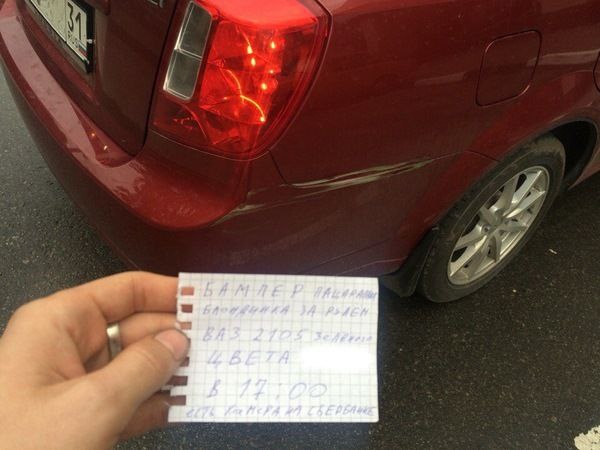 31
БАМПЕР ПАЦАРАПАЛА
БЛОНДИНКА ЗА РУЛЕМ
ВАЗ 2105 ЗЕЛЁНОГО
ЦВЕТА
В 17:00
ЕСТЬ КАМЕРА НА СБЕРБАНКЕ